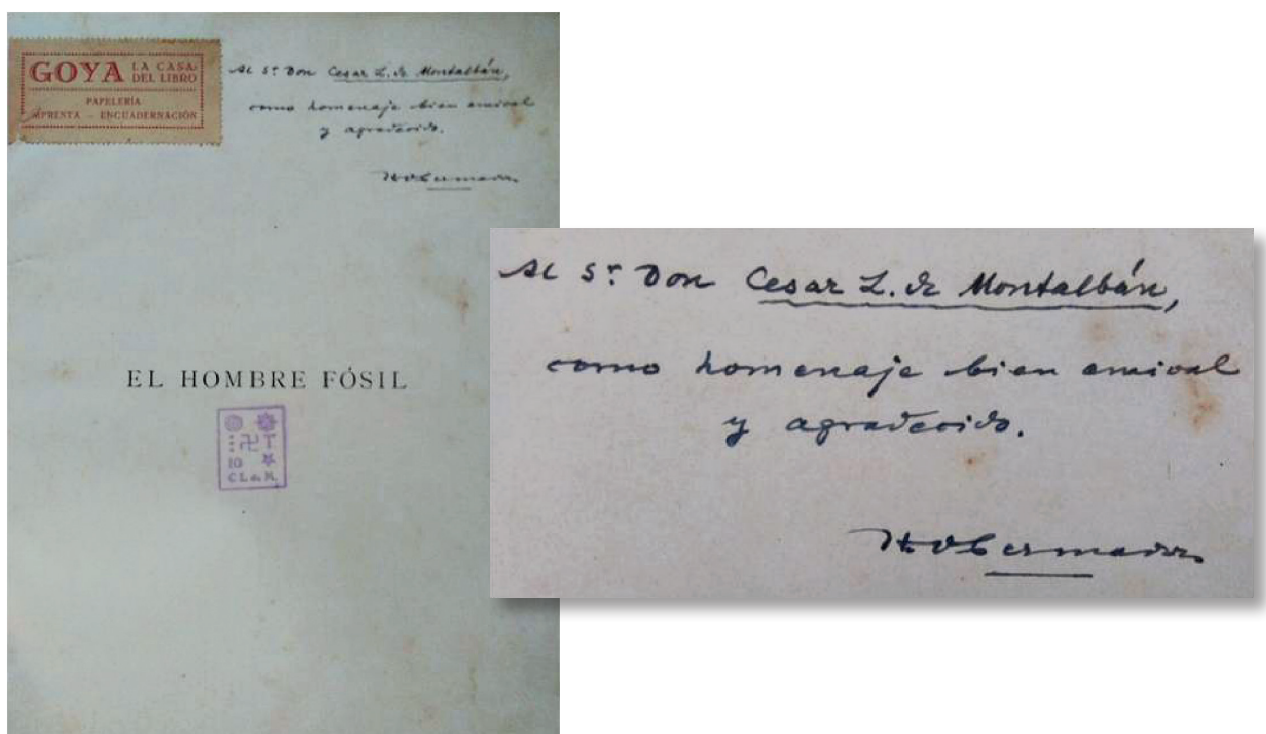 GOYA LA CASA
DEL LIBRO
PAPELERÍA
IMPRENTA - ENCUADERNACIÓN
Al Sr. Don Cesar L. de Montalbán,
como homenaje bien amical
y agradecido.
HObermaier
EL HOMBRE FÓSIL
T
10
C L de M.
Al Sr. Don Cesar L. de Montalbán,
como homenaje bien amical
y agradecido.
HObermaier